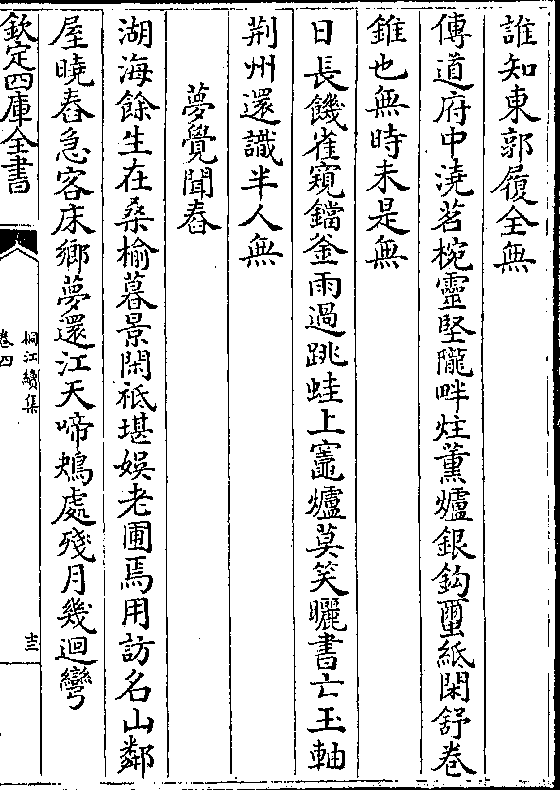 誰知東郭履全無
傳道府中澆茗椀靈堅隴畔炷薰爐銀鈎蠒紙閑舒卷
錐也無時未是無
日長饑雀窺鐺釡雨過跳蛙上竈爐莫笑曬書亡玉軸
荆州還識半人無
夢覺聞舂
湖海餘生在桑榆暮景閑祗堪娛老圃焉用訪名山鄰
屋曉舂急客床鄉夢還江天啼鴂處殘月幾迴彎
欽定四庫全書
桐江續集
卷四
十三